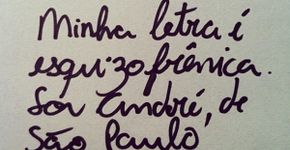 Minha letra é
esquizofrênica.
Sou André, de
São Paulo